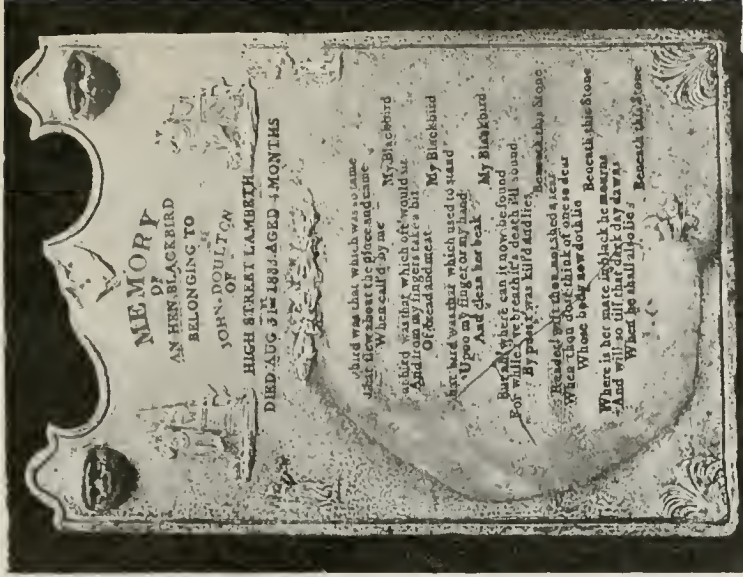 MEMORY
OF
AN HEN BLACKBIRD
BELONGING TO
JOHN DOULTON
OF
HIGH STREET LAMBETH
DIED AUG 31st AGED 4 MONTHS
bird was that which was so tame
that flew about the place and came
When call'd by me
My Blackbird
bird was that which oft would sit
And from my fingers take a bit
Of bread and meat
My Blackbird
bird was that which used to stand
Upon my finger or my hand
And clean her beak
My Blackbird
But ah where can it now be found
For while I've breath it's death I'll sound
By was kill'd and lies
Beneath this Stone
Reader wilt thou not shed a tear
When thou dost think of one so dear
Whose body now doth lie
Beneath this Stone
Where is her mate in black he mourns
And will so till that dark day dawns
When he shall also lie
Beneath this Stone